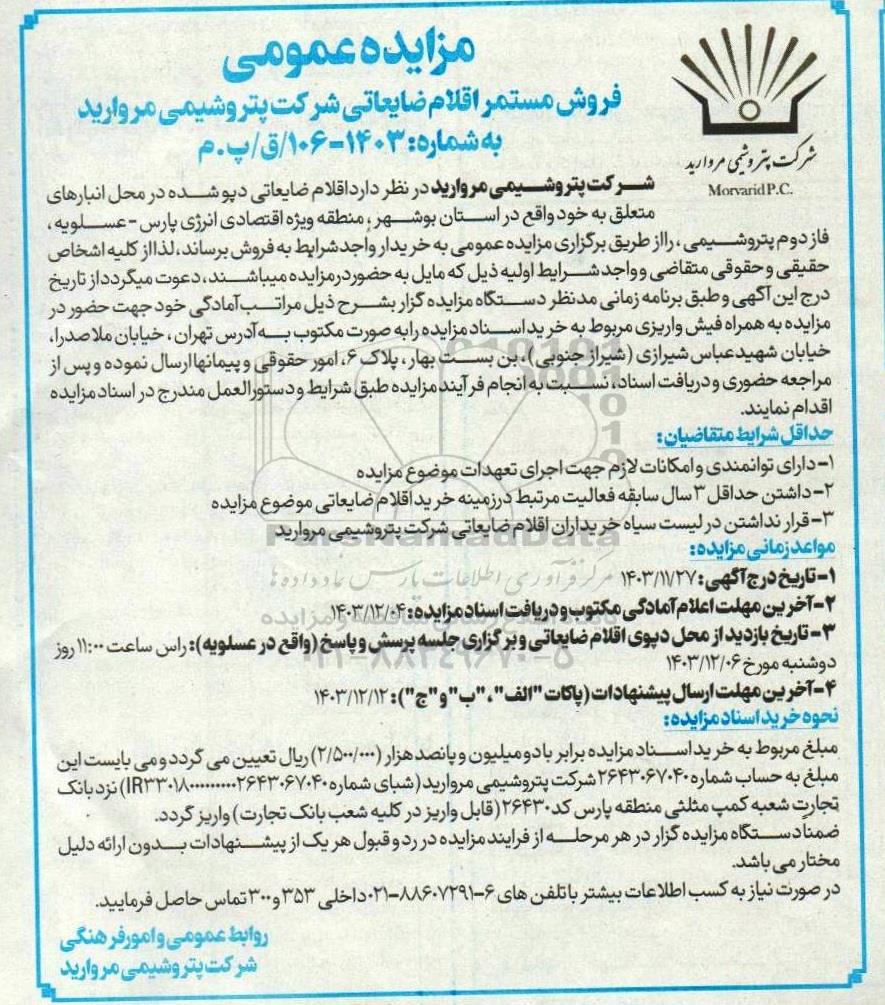 مزایده عمومی
فروش مستمر اقلام ضایعاتی شرکت پتروشیمی مروارید
به شماره: ۱۴۰۳-۱۰۶/ق/پ.م
شرکت پتروشیمی مروارید
Morvarid P.C.
شرکت پتروشیمی مروارید در نظر دارد اقلام ضایعاتی دپو شده در محل انبارهای
متعلق به خود واقع در استان بوشهر، منطقه ویژه اقتصادی انرژی پارس - عسلویه،
فاز دوم پتروشیمی، را از طریق برگزاری مزایده عمومی به خریدار واجد شرایط به فروش برساند، لذا از کلیه اشخاص
حقیقی و حقوقی متقاضی و واجد شرایط اولیه ذیل که مایل به حضور در مزایده میباشند، دعوت میگردد از تاریخ
درج این آگهی و طبق برنامه زمانی مدنظر دستگاه مزایده گزار بشرح ذیل مراتب آمادگی خود جهت حضور در
مزایده به همراه فیش واریزی مربوط به خرید اسناد مزایده را به صورت مکتوب به آدرس تهران، خیابان ملاصدرا،
خیابان شهید عباس شیرازی (شیراز جنوبی)، بن بست بهار، پلاک ۶، امور حقوقی و پیمانها ارسال نموده و پس از
مراجعه حضوری و دریافت اسناد، نسبت به انجام فرآیند مزایده طبق شرایط و دستورالعمل مندرج در اسناد مزایده
اقدام نمایند.
حداقل شرایط متقاضیان:
۱- دارای توانمندی و امکانات لازم جهت اجرای تعهدات موضوع مزایده
۲- داشتن حداقل ۳ سال سابقه فعالیت مرتبط در زمینه خرید اقلام ضایعاتی موضوع مزایده
۳- قرار نداشتن در لیست سیاه خریداران اقلام ضایعاتی شرکت پتروشیمی مروارید
ParsNamadData
مواعد زمانی مزایده:
۱- تاریخ درج آگهی: ۱۴۰۳/۱۱/۲۷
مرکز فرآوری اطلاعات پارس نماد داده ها
۲- آخرین مهلت اعلام آمادگی مکتوب و دریافت اسناد مزایده: ۱۴۰۳/۱۲/۰۴
۳- تاریخ بازدید از محل دپوی اقلام ضایعاتی و برگزاری جلسه پرسش و پاسخ (واقع در عسلویه): راس ساعت ۱۱:۰۰ روز
دوشنبه مورخ ۱۴۰۳/۱۲/۰۶
۰۲۱-۸۸۳۴۹۶۷۰-۵
۴- آخرین مهلت ارسال پیشنهادات (پاکات "الف"، "ب" و "ج"): ۱۴۰۳/۱۲/۱۲
نحوه خرید اسناد مزایده:
مبلغ مربوط به خرید اسناد مزایده برابر با دو میلیون و پانصد هزار (۲/۵۰۰/۰۰۰) ریال تعیین می گردد و می بایست این
مبلغ به حساب شماره ۲۶۴۳۰۶۷۰۴۰ شرکت پتروشیمی مروارید (شبای شماره IR۳۳۰۱۸۰۰۰۰۰۰۰۰۰۰۲۶۴۳۰۶۷۰۴۰) نزد بانک
تجارت شعبه کمپ مثلثی منطقه پارس کد ۲۶۴۳۰ (قابل واریز در کلیه شعب بانک تجارت) واریز گردد.
ضمناً دستگاه مزایده گزار در هر مرحله از فرایند مزایده در رد و قبول هر یک از پیشنهادات بدون ارائه دلیل
مختار می باشد.
در صورت نیاز به کسب اطلاعات بیشتر با تلفن های ۶-۸۸۶۰۷۲۹۱-۰۲۱ داخلی ۳۵۳ و ۳۰۰ تماس حاصل فرمایید.
روابط عمومی و امور فرهنگی
شرکت پتروشیمی مروارید